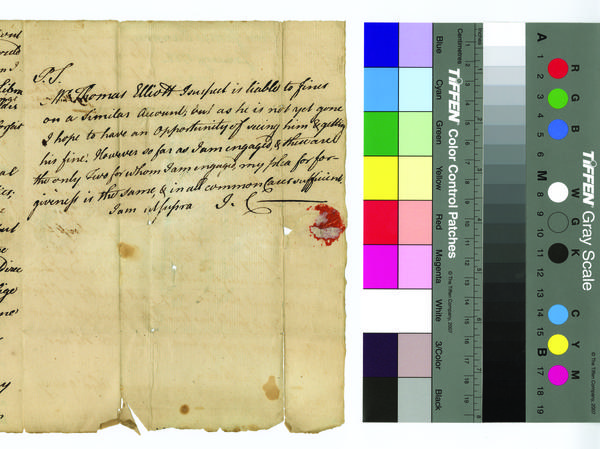 P.S.
Mr. Thomas Elliott I suspect is liable to fines
on a Similar Account, but as he is not yet gone
I hope to have an Opportunity of seeing him & getting
his fine. However so far as I am engaged, & these are
the only Two for whom I am engaged, my plea for for-
giveness is the same, & in all common Cases sufficient.
I am ut supra J. C
Blue
Cyan
Green
Yellow
Red
Magenta
White
3/Color
Black
Centimetres
Inches
TIFFEN Color Control Patches
© The Tiffen Company, 2007
A 1 2 3 4 5 6 M 8 9 10 11 12 13 14 15 B 17 18 19
R G B
W G K
C Y M
TIFFEN Gray Scale
© The Tiffen Company, 2007